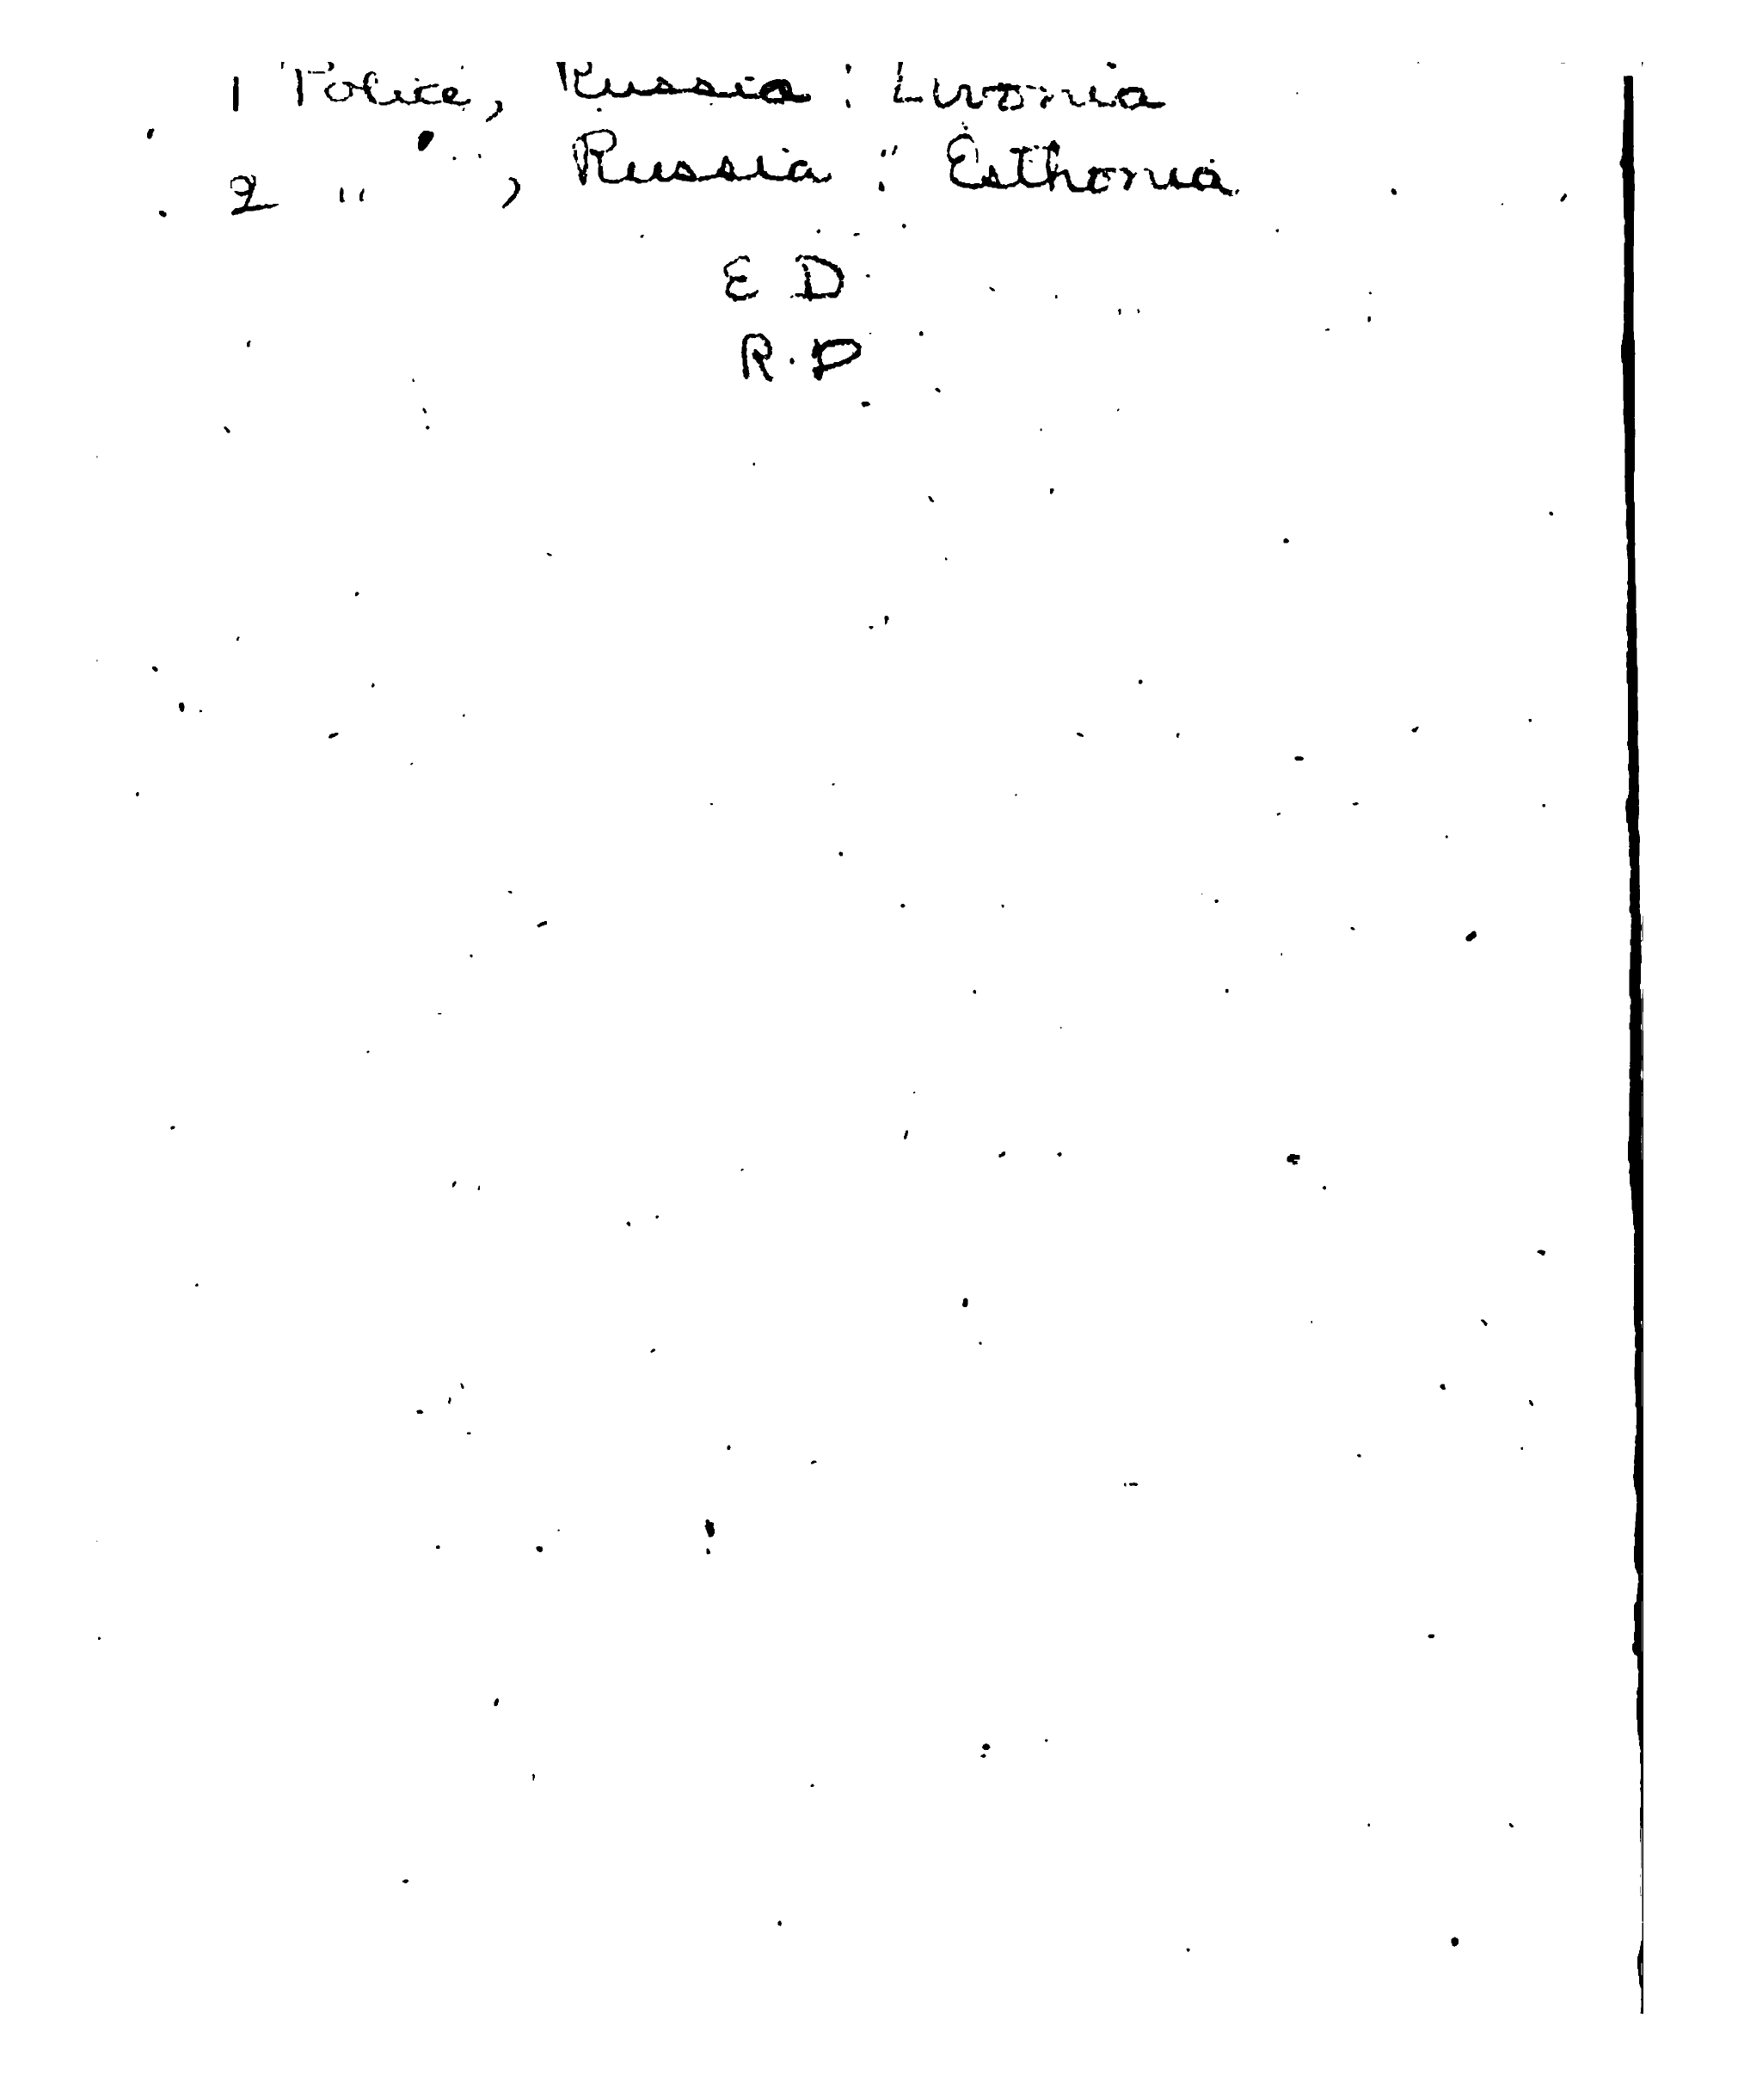 1 Police, Russia : Livonia
2 " , Russia : Esthonia
E D
R. P